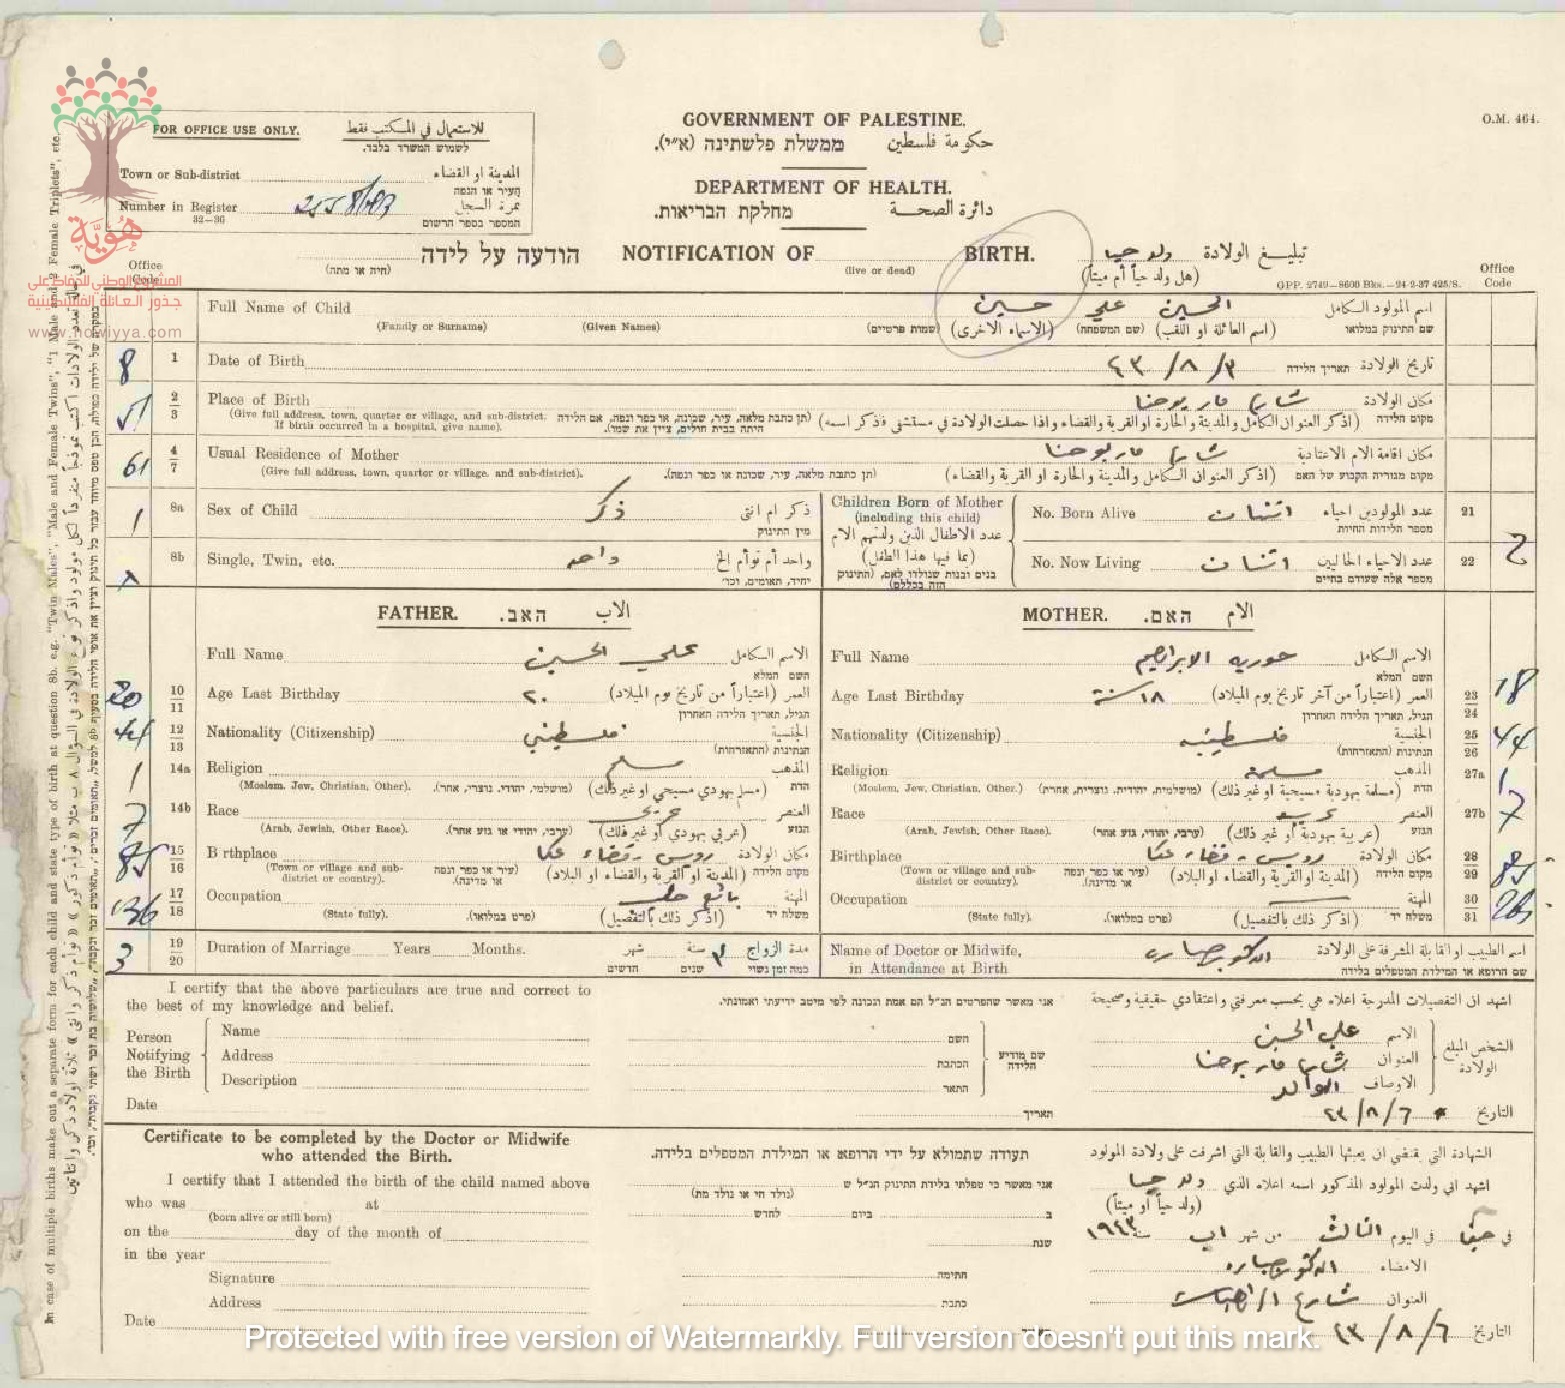 O.M. 464.
FOR OFFICE USE ONLY. للاستعمال في المكتب فقط
לשמוש המשרד בלבד.
Town or Sub-district المدينة او القضاء
העיר או הנפה
Number in Register نمرة السجل
32-36 המספר בספר הרשום
GOVERNMENT OF PALESTINE.
ממשלת פלשתינה (א״י). حكومة فلسطين
DEPARTMENT OF HEALTH.
מחלקת הבריאות. دائرة الصحة
הודעה על לידה NOTIFICATION OF BIRTH. ولد حيا تبليغ الولادة
(חיה או מתה) (live or dead) (هل ولد حياً أم ميتاً)
GPP. 2749-8600 Bks.-24-2-37 425/S.
Office Code Office Code
هُويّة
المشروع الوطني للحفاظ على
جذور العائلة الفلسطينية
www.howiyya.com
Full Name of Child حسين علي الحسين اسم المولود الكامل
(Family or Surname) (Given Names) שמות פרטיים) (الاسماء الاخرى) (שם המשפחה) (اسم العائلة او اللقب) שם התינוק במלואו
8 1 Date of Birth ٣/٨/٤٣ תאריך הלידה تاريخ الولادة
2 3 Place of Birth شارع مار يوحنا مكان الولادة
(Give full address, town, quarter or village, and sub-district. If birth occurred in a hospital, give name). (תן כתבת מלאה, עיר, שכונה, או כפר ונפה, אם הלידה היתה בבית חולים, ציין את שמו). (اذكر العنوان الكامل والمدينة والحارة او القرية والقضاء واذا حصلت الولادة في مستشفى فاذكر اسمه) מקום הלידה
61 4 7 Usual Residence of Mother شارع مار يوحنا مكان اقامة الام الاعتيادية
(Give full address, town, quarter or village, and sub-district). (תן כתבת מלאה, עיר, שכונה או כפר ונפה). (اذكر العنوان الكامل والمدينة والحارة او القرية والقضاء) מקום מגוריה הקבוע של האם
1 8a Sex of Child ذكر ذكر ام انثى
מין התינוק
8b Single, Twin, etc. واحد واحد أم توأم الخ
יחיד, תאומים, וכו׳
Children Born of Mother (including this child)
عدد الاطفال الذين ولدتهم الام (بما فيها هذا الطفل)
בנים ובנות שנולדו לאם, (התינוק הזה בכלל)
No. Born Alive اثنان عدد المولودين احياء 21
מספר הלידות החיות
No. Now Living اثنان عدد الاحياء الحاليين 22 2
מספר אלה שעודם בחיים
FATHER. האב. الاب
Full Name علي الحسين الاسم الكامل
השם המלא
20 10 11 Age Last Birthday ٢٠ العمر (اعتباراً من تاريخ يوم الميلاد)
הגיל, תאריך הלידה האחרון
44 12 13 Nationality (Citizenship) فلسطيني الجنسية
הנתינות (האזרחות)
1 14a Religion مسلم المذهب
(Moslem, Jew, Christian, Other). (מושלמי, יהודי, נוצרי, אחר). (مسلم يهودي مسيحي او غير ذلك) הדת
7 14b Race عربي العنصر
(Arab, Jewish, Other Race). (ערבי, יהודי או גזע אחר). (عربي يهودي او غير ذلك) הגזע
85 15 16 Birthplace رويس - قضاء عكا مكان الولادة
(Town or village and sub-district or country). (עיר או כפר ונפה או מדינה). (المدينة او القرية والقضاء او البلاد) מקום הלידה
136 17 18 Occupation بائع المهنة
(State fully). (פרט במלואו). (اذكر ذلك بالتفصيل) משלח יד
3 19 20 Duration of Marriage Years Months. شهر سنة ٣ مدة الزواج
חדשים שנים כמה זמן נשוי
MOTHER. האם. الام
Full Name حوريه الابراهيم الاسم الكامل
השם המלא
Age Last Birthday ١٨ سنة العمر (اعتباراً من آخر تاريخ يوم الميلاد) 23 24 18
הגיל, תאריך הלידה האחרון
Nationality (Citizenship) فلسطينيه الجنسية 25 26 44
הנתינות (האזרחות)
Religion مسلمة المذهب 27a 1
(Moslem, Jew, Christian, Other.) (מושלמית, יהודית, נוצרית, אחרת) (مسلمة يهودية مسيحية او غير ذلك) הדת
Race عربيه العنصر 27b 7
(Arab, Jewish, Other Race). (ערבי, יהודי, גזע אחר) (عربية يهودية او غير ذلك) הגזע
Birthplace رويس - قضاء عكا مكان الولادة 28 29 85
(Town or village and sub-district or country). (עיר או כפר ונפה או מדינה). (المدينة او القرية والقضاء او البلاد) מקום הלידה
Occupation المهنة 30 31
(State fully). (פרט במלואו). (اذكر ذلك بالتفصيل) משלח יד
Name of Doctor or Midwife, الدكتور حباره اسم الطبيب او القابلة المشرفة على الولادة
in Attendance at Birth שם הרופא או המילדת המטפלים בלידה
I certify that the above particulars are true and correct to the best of my knowledge and belief.
אני מאשר שהפרטים הנ״ל הם אמת ונכונה לפי מיטב ידיעתי ואמונתי.
اشهد ان التفصيلات المدرجة اعلاه هي بحسب معرفتي واعتقادي حقيقية وصحيحة
Person Notifying the Birth שם מודיע הלידה الشخص المبلغ الولادة
Name השם علي الحسين الاسم
Address הכתבת شارع مار يوحنا العنوان
Description התאר الوالد الاوصاف
Date תאריך ٦/٨/٤٣ التاريخ
Certificate to be completed by the Doctor or Midwife who attended the Birth.
תעודה שתמולא על ידי הרופא או המילדת המטפלים בלידה.
الشهادة التي يقتضي ان يعبئها الطبيب والقابلة التي اشرفت على ولادة المولود
I certify that I attended the birth of the child named above אני מאשר כי טפלתי בלידת התינוק הנ״ל ש اشهد اني ولدت المولود المذكور اسمه اعلاه الذي ولد حيا
who was at (נולד חי או נולד מת) (ولد حياً أو ميتاً)
(born alive or still born) ב ביום לחדש
on the day of the month of في حيفا في اليوم الثالث من شهر اب سنة ١٩٤٣
in the year שנת
Signature חתימה الدكتور حباره الامضاء
Address כתבת شارع العنوان
Date ٦/٨/٤٣ التاريخ
In case of multiple births make out a separate form for each child and state type of birth at question 8b. e.g. "Twin Males". "Male and Female Twins", "1 Male and 2 Female Triplets", etc.
Protected with free version of Watermarkly. Full version doesn't put this mark.